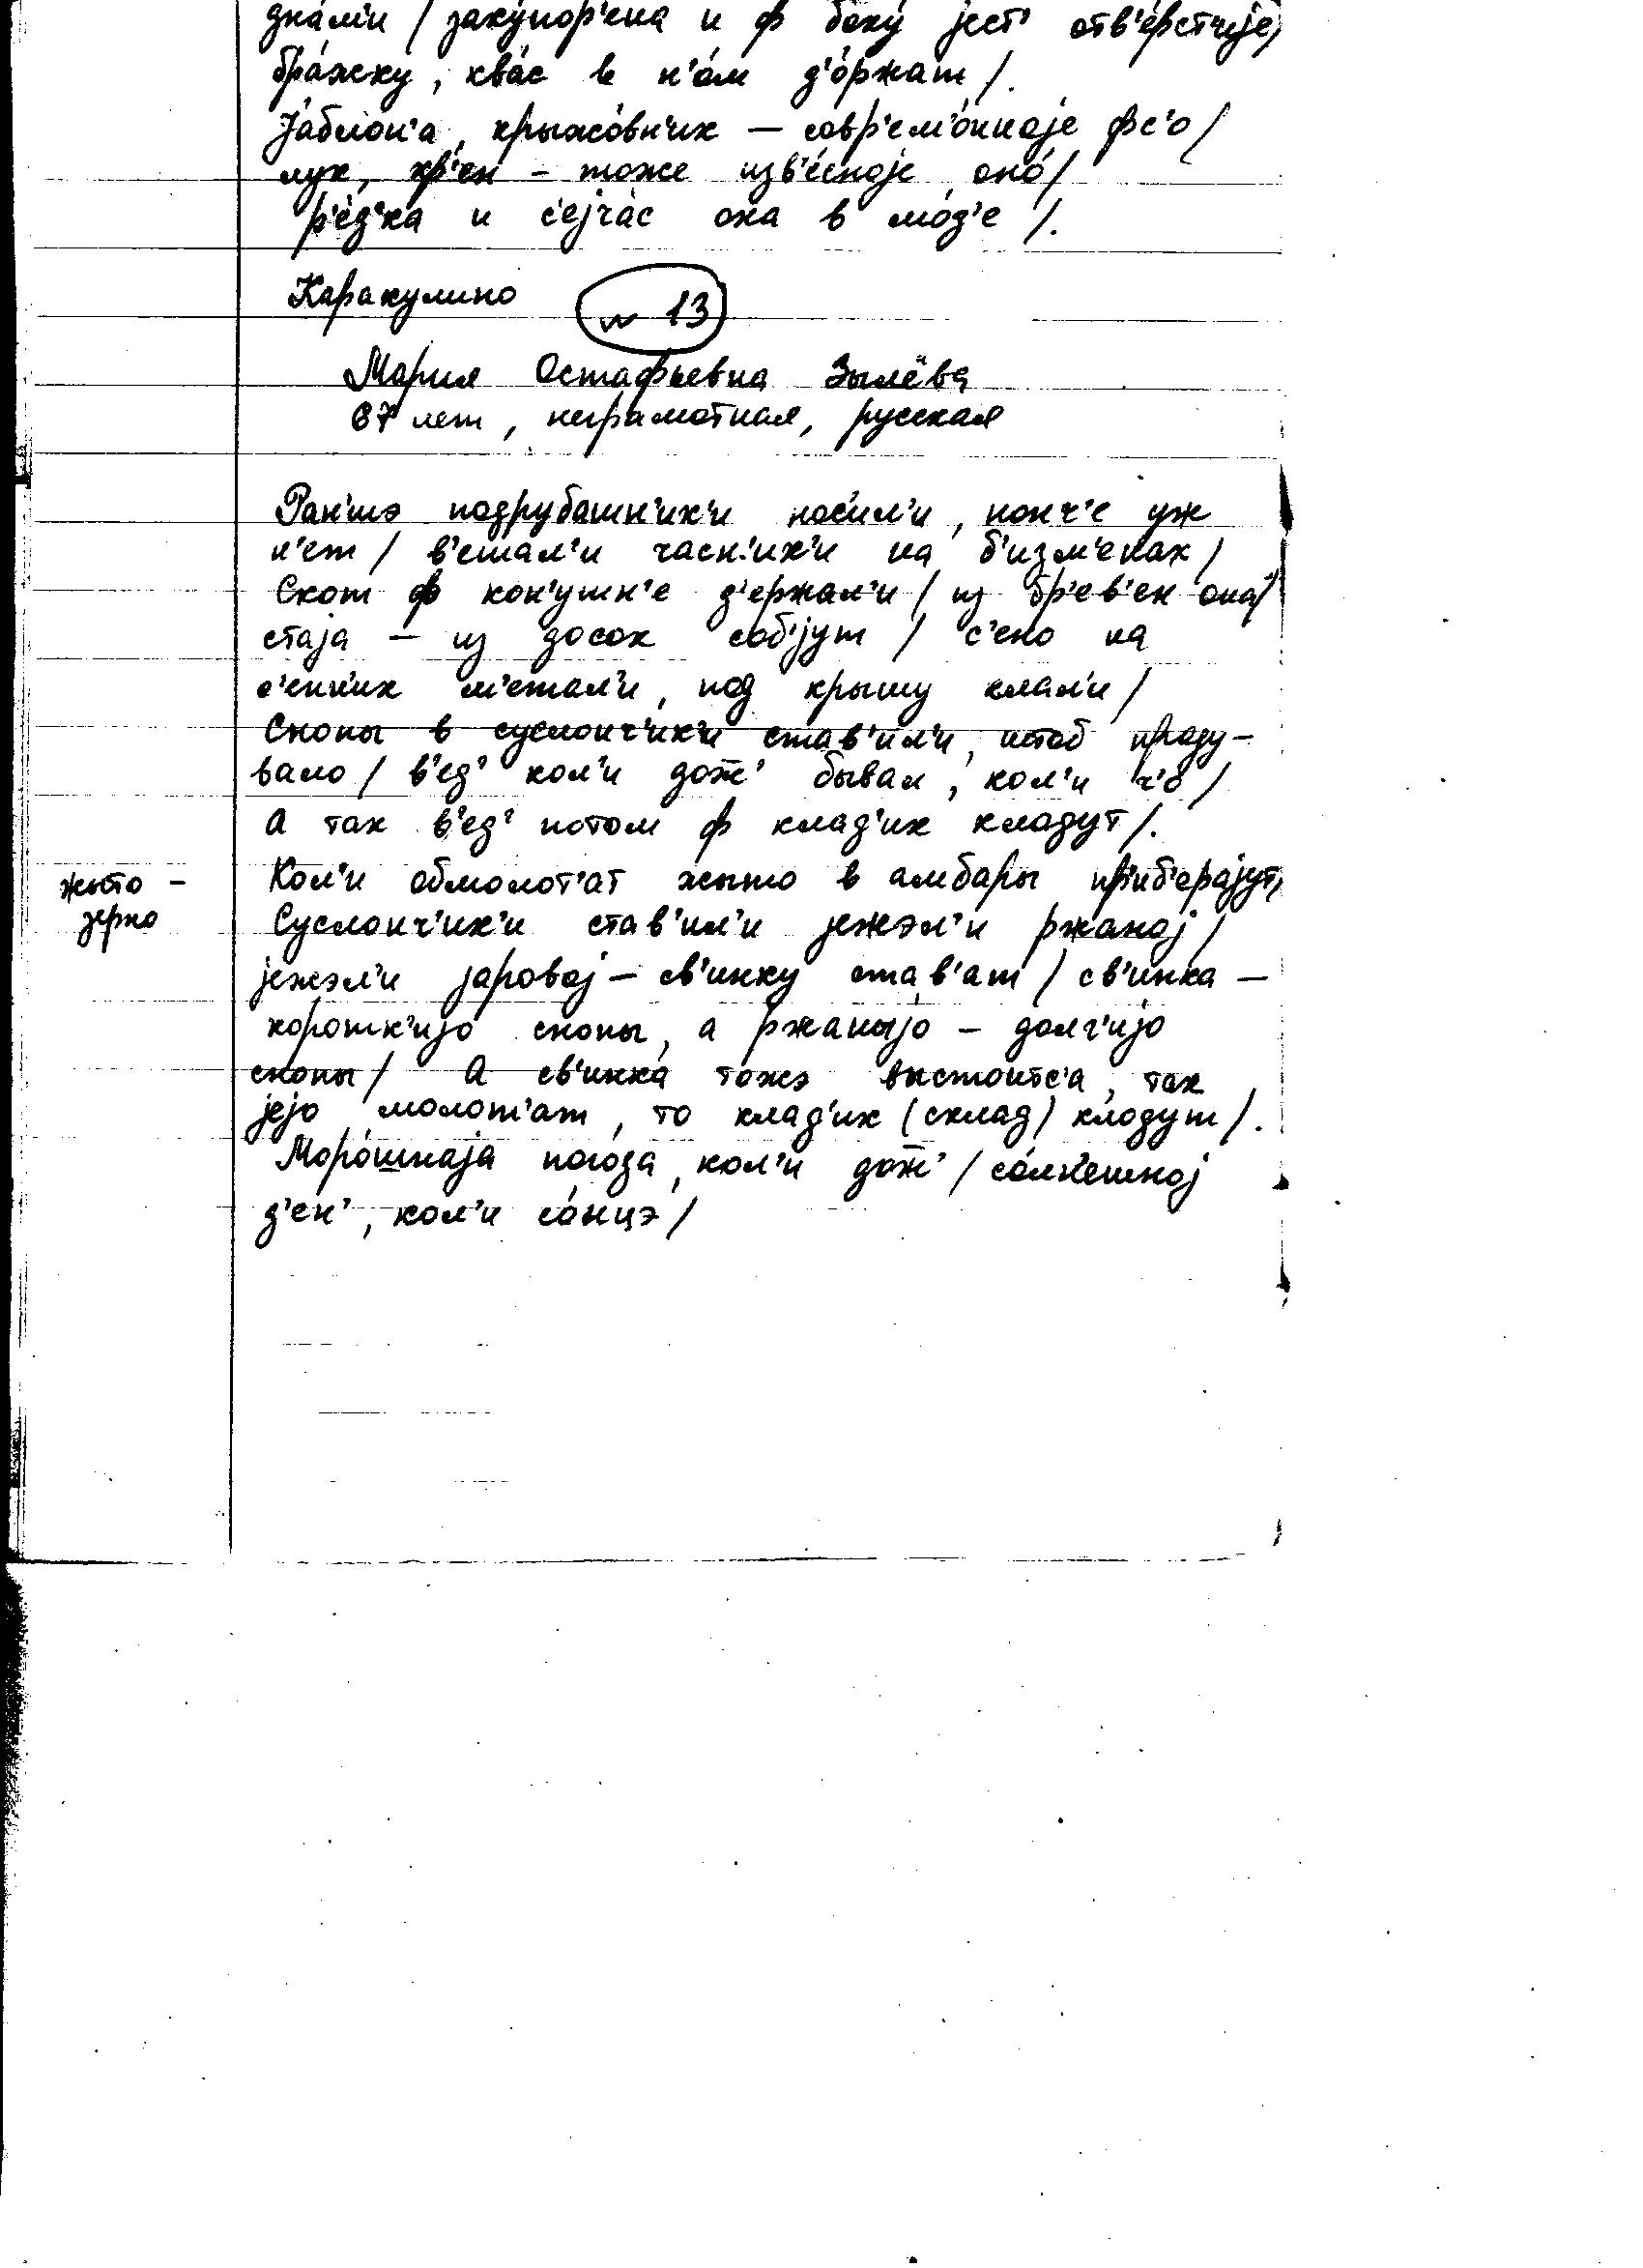 дна́м'и / заку́пор'ена и ф боку́ јест' отв'е́рстчијe/
бра́жку, ква́с в н'о́м д'о́ржат /.
Jа́блон'а, крыжо́вн'ик – совр'ем'о́нноjе фс'о /
лук, хр'ен – тоже изв'е́сноjе оно́ /
р'е́д'ка и с'еjча́с она в мо́д'е /.
Каракулино
№ 13
Мария Остафьевна Зылёва
67 лет, неграмотная, русская
Ран'шэ подрубашн'ик'и нос'ил'и, нонч'е уж
н'ет / в'ешал'и часн'ик'и на б'изм'енах /
Скот ф кон'ушн'е д'ержал'и / из бр'ев'ен она /
стаjа – из досок собjут / с'ено на
с'енн'ик м'етал'и, под крышу клал'и /
Снопы в суслонч'ик'и став'ил'и, штоб проду-
вало / в'ед' кол'и дож' бывал, кол'и ч'о /
А так в'ед' потом ф клад'ик кладут /.
жыто –
зерно
Кол'и обмолот'ат жыто в амбары пр'иб'ераjут/
Суслонч'ик'и став'ил'и jежэл'и ржаноj /
jежэл'и jаровоj – св'инку став'ат / св'инка –
коротк'иjо снопы, а ржаныjо – долг'иjо
снопы / А св'инка тожэ выстоитс'а, так
jеjо молот'ат, то клад'ик (склад) кладут /.
Моро́шнаjа погода, кол'и дож' / со́лн'ешноj
д'ен', кол'и со́нцэ /